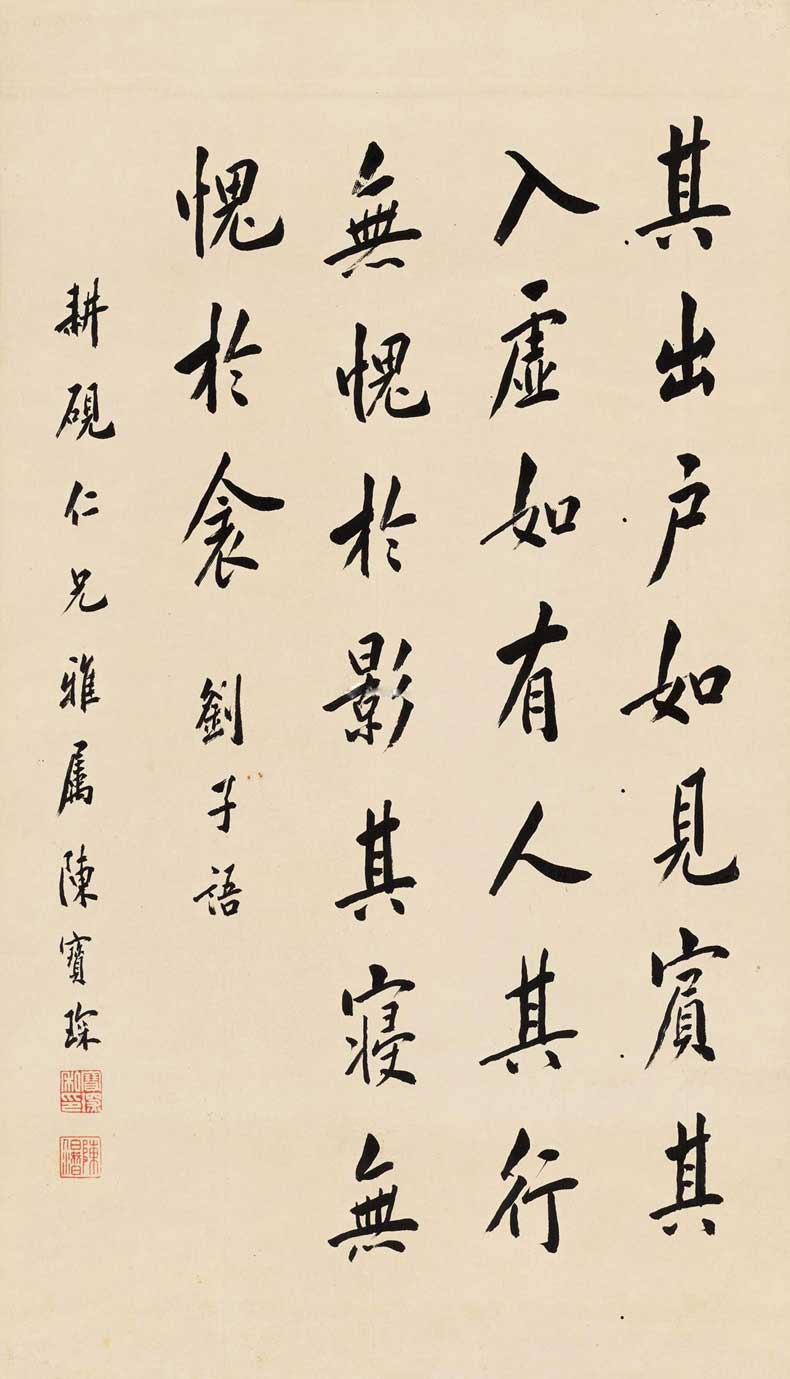 其出户如見賓其
入虛如有人其行
無愧於影其寢無
愧於衾 劉子語
耕硯仁兄雅属陳寶琛
陳伯潛